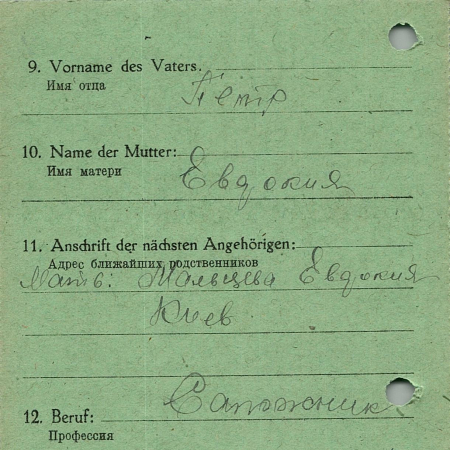 9. Vorname des Vaters.
Имя отца
Пётр
10. Name der Mutter:
Имя матери
Евдокия
11. Anschrift der nächsten Angehörigen:
Адрес ближайших родственников
Мать: Мальцева Евдокия
Киев
Сапожник
12. Beruf:
Профессия